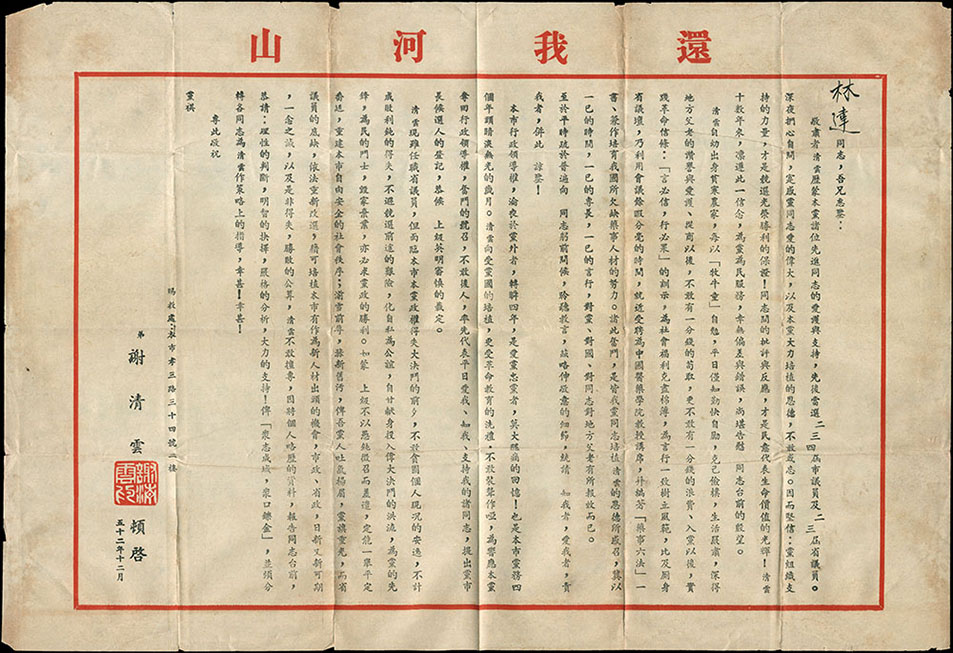 還我河山
林達 同志,吾兄惠鑒:
敬肅者清雲歷蒙本黨諸位先進同志的愛護與支持,先後當選二三四屆市議員及二三屆省議員。
深夜捫心自問,定感黨同志愛的偉大,以及本黨大力培植的恩德,不敢或忘。因而堅信:黨組織支
持的力量,才是競選光榮勝利的保證!同志間的批評與反應,才是民意代表生命價值的光輝!清雲
十數年來,懍遵此一信念,為黨為民服務,幸無偏差與錯誤,尚堪告慰 同志台前的殷望。
清雲自幼出身貧寒農家,每以「牧牛童」自勉,平日僅知勤快自勵,克己儉樸,生活嚴肅,深得
地方父老的讚譽與愛護、從商以後,不敢有一分錢的苟取,更不敢有一分錢的浪費、入黨以後,實
踐革命信條:「言必信,行必果」的訓示,為社會福利克盡棉薄,為言行一致樹立風範,比及廁身
省議壇,乃利用會議餘暇分毫的時間,就近受聘為中國醫藥學院教授講席,并編著「藥事六法」一
書、藉作培育我國所欠缺藥事人材的努力。諸此奮鬥,是皆我黨同志培植清雲的恩德所感召,冀以
一己的時間,一己的專長,一己的言行,對黨、對國、對同志對地方父老有所報效而已。
至於平時疏於普遍向 同志躬前問候,聆聽教言,疏略伸敬意的細節,統請 知我者,愛我者,責
我者,併此 諒鑒!
本市行政領導權,淪喪於黨外者,轉瞬四年,是愛黨忠黨者,莫大慘痛的回憶!也是本市黨務四
個年頭暗淡無光的歲月。清雲向受黨國的培植,更受革命教育的洗禮,不敢裝聾作啞,為響應本黨
奪回行政領導權,奮鬥的號召,不敢後人,率先代表平日愛我、知我、支持我的諸同志,提出黨市
長候選人的登記,恭候 上級英明審慎的裁定。
清雲現雖任職省議員,但面臨本市本黨政權得失大決鬥的前夕,不敢貪圖個人現況的安逸,不計
成敗利鈍的得失,不避競選前途的艱險,化自私為公誼,自甘獻身投入偉大決鬥的洪流,為黨的先
鋒,為民的鬥士,毀家棄業,亦必求黨政的勝利。如蒙 上級不以愚鈍徵召而差遣,定能一舉平定
喬遷,重建本市自由安全的社會秩序;湔雪前辱,掃新舊污,俾吾黨人吐氣揚眉,黨旗重光,尚有
議員的底缺,依法重新改選,猶可培植本市有作為新人材出頭的機會,市政、省政,日新又新可期
,一念之誠,以及是非得失,勝敗的公算,清雲不敢擅專,因將個人略歷的資料,報告同志台前,
恭請:理性的判斷,明智的抉擇,嚴格的分析,大力的支持!俾「眾志成城,眾口鑠金」,並煩分
轉各同志為清雲作策略上的指導,幸甚!幸甚!
專此敬祝
黨祺
賜教處:本市孝三路三十四號二樓
弟 謝清雲 頓啓
謝清雲印
五十二年十二月